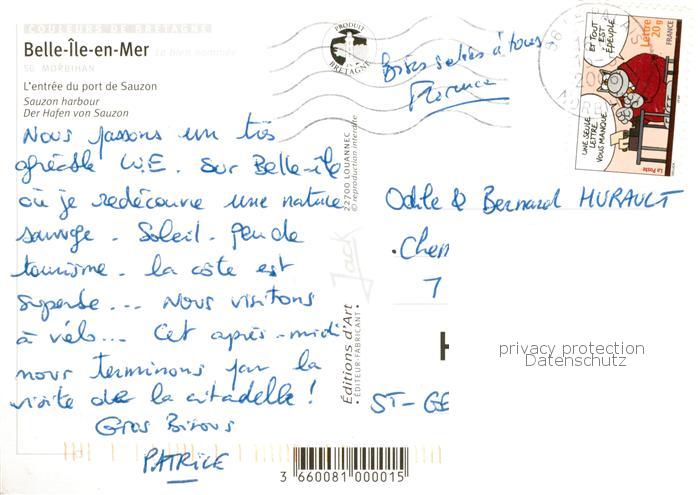 COULEURS DE BRETAGNE
Belle-Île-en-Mer La bien nommée
56 MORBIHAN
L'entrée du port de Sauzon
Sauzon harbour
Der Hafen von Sauzon
Nous passons un très
agréable W.E. sur Belle-île
où je redécouvre une nature
sauvage. Soleil. peu de
tourisme. la côte est
superbe... Nous visitons
à vélo... Cet après-midi
nous terminons par la
visite de la citadelle !
Gros Bisous
PATRICE
PRODUIT
BRETAGNE
22700 LOUANNEC
© reproduction interdite
Jack
Editions d'Art
• ÉDITEUR-FABRICANT •
3 660081 000015
Bises salées à tous
Florence
ET TOUT
EST
REPEUPLÉ
UNE SEULE
LETTRE
VOUS MANQUE
Lettre 20g
FRANCE
La Poste
Odile & Bernard HURAULT
• Chem
7
H
privacy protection
Datenschutz
ST-GE